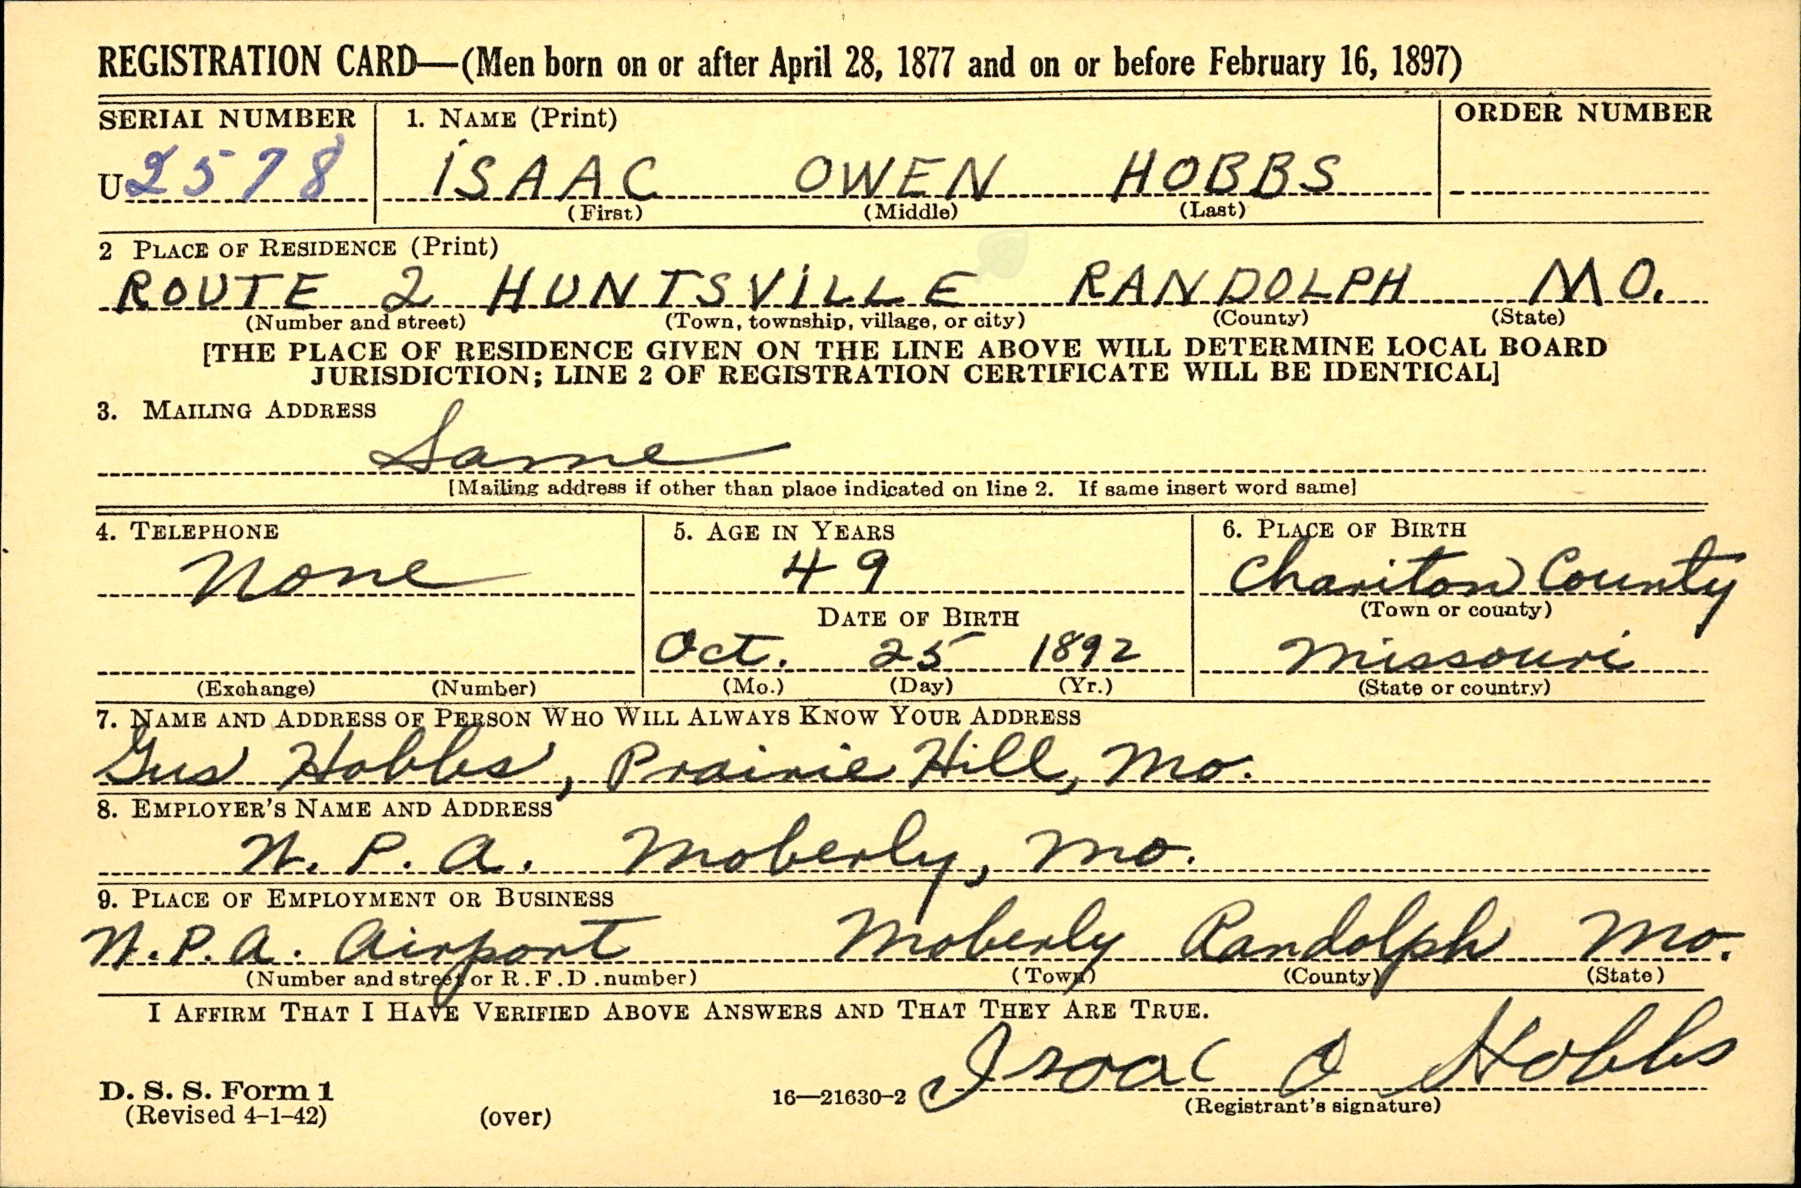 REGISTRATION CARD—(Men born on or after April 28, 1877 and on or before February 16, 1897)
SERIAL NUMBER 1. NAME (Print) ORDER NUMBER
U 2578 ISAAC OWEN HOBBS
(First) (Middle) (Last)
2 PLACE OF RESIDENCE (Print)
ROUTE 2 HUNTSVILLE RANDOLPH MO.
(Number and street) (Town, township, village, or city) (County) (State)
[THE PLACE OF RESIDENCE GIVEN ON THE LINE ABOVE WILL DETERMINE LOCAL BOARD
JURISDICTION; LINE 2 OF REGISTRATION CERTIFICATE WILL BE IDENTICAL]
3. MAILING ADDRESS
Same
[Mailing address if other than place indicated on line 2. If same insert word same]
4. TELEPHONE 5. AGE IN YEARS 6. PLACE OF BIRTH
None 49 Chariton County
DATE OF BIRTH (Town or county)
Oct. 25 1892 Missouri
(Exchange) (Number) (Mo.) (Day) (Yr.) (State or country)
7. NAME AND ADDRESS OF PERSON WHO WILL ALWAYS KNOW YOUR ADDRESS
Gus Hobbs, Prairie Hill, Mo.
8. EMPLOYER'S NAME AND ADDRESS
N.P.A. Moberly, Mo.
9. PLACE OF EMPLOYMENT OR BUSINESS
N.P.A. Airport Moberly Randolph Mo.
(Number and street or R.F.D. number) (Town) (County) (State)
I AFFIRM THAT I HAVE VERIFIED ABOVE ANSWERS AND THAT THEY ARE TRUE.
Isaac O Hobbs
D. S. S. Form 1
(Revised 4-1-42) (over) 16—21630-2 (Registrant's signature)